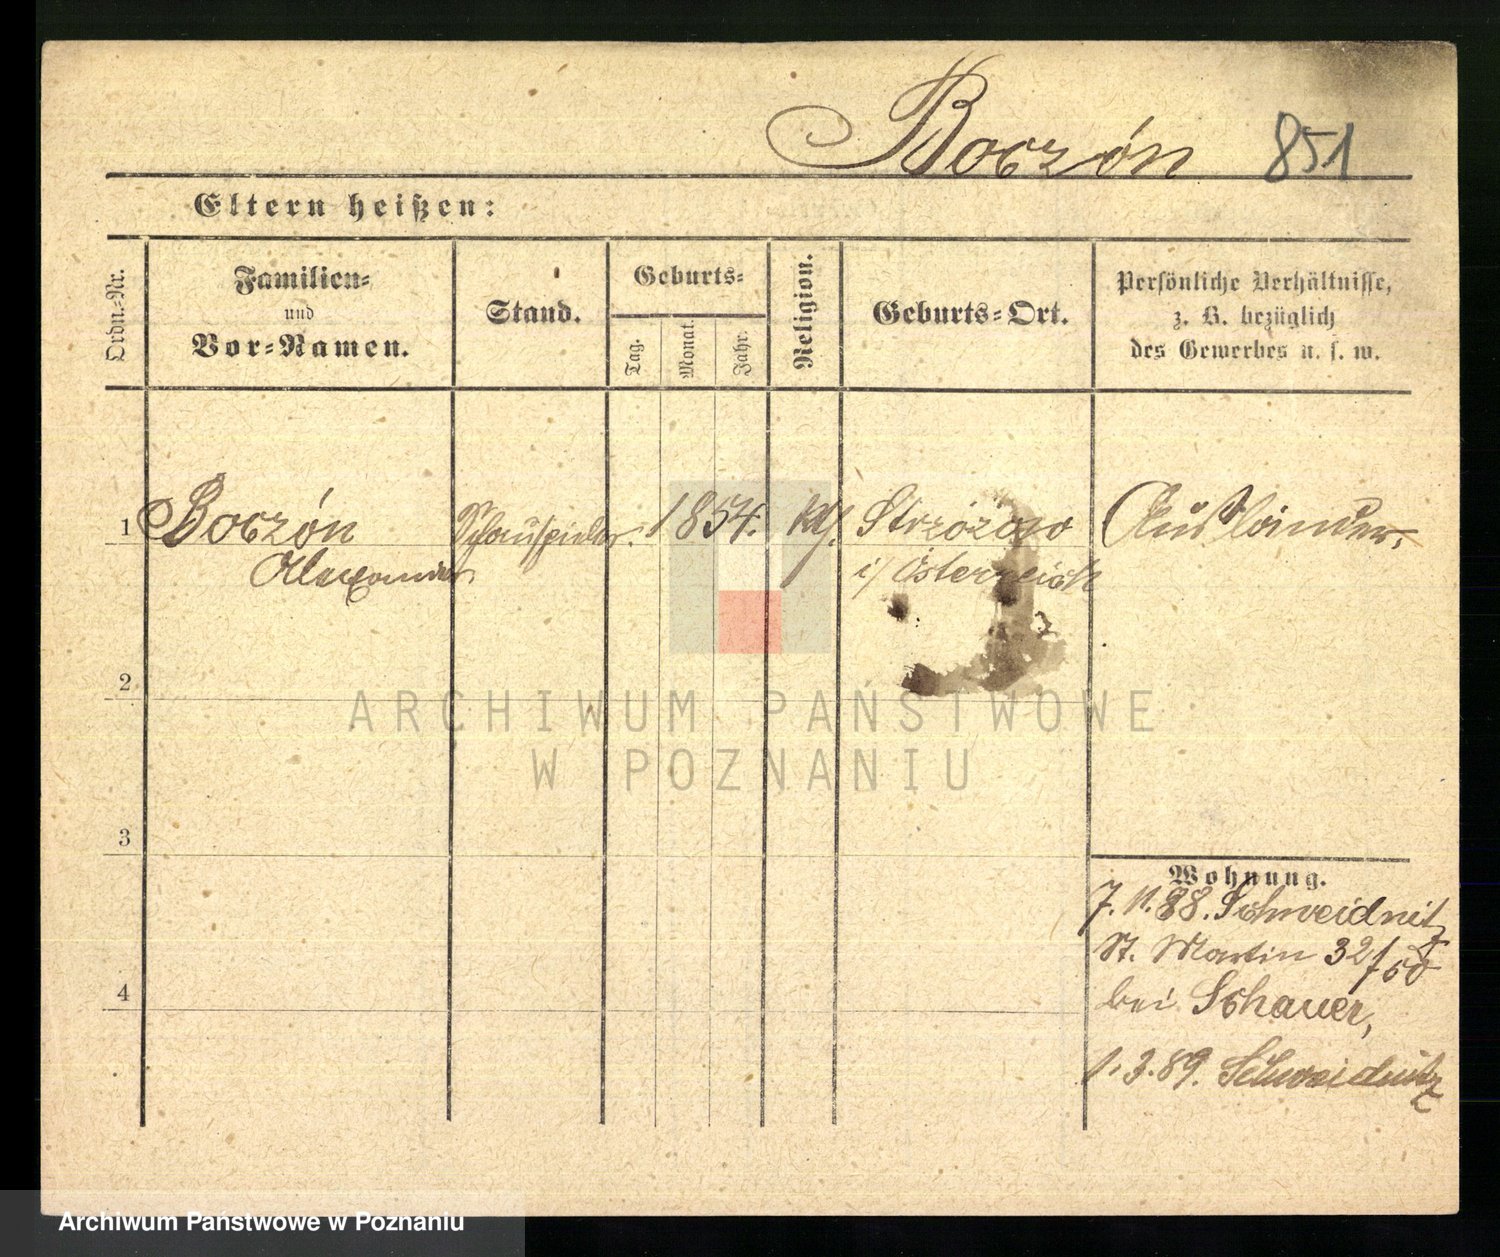 Boczón 851
Eltern heißen:
Ordn.-Nr.
Familien-
und
Vor-Namen.
Stand.
Geburts-
Tag.
Monat.
Jahr.
Religion.
Geburts-Ort.
Persönliche Verhältnisse,
z. B. bezüglich
des Gewerbes u. s. w.
1 Boczón Schauspieler. 1854. kth. Ausländer.
Alexander i/ Österreich
2
3
4
Wohnung.
7. 11. 88. Schweidnitz
St. Martin 32/
bei Schauer,
1. 3. 89. Schweidnitz
ARCHIWUM PAŃSTWOWE
W POZNANIU
Archiwum Państwowe w Poznaniu